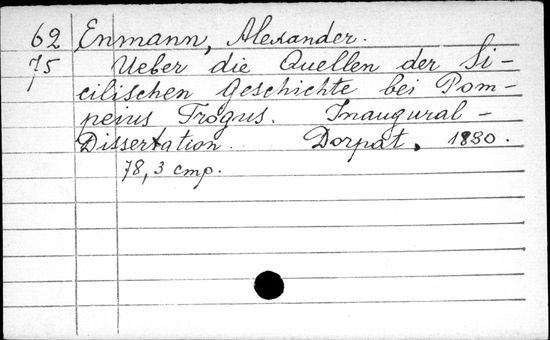 62 Enmann, Alexander.
75 Ueber die Quellen der Si-
cilischen Geschichte bei Pom-
peius Trogus. Inaugural-
Dissertation. Dorpat, 1880.
78,3 cmp.